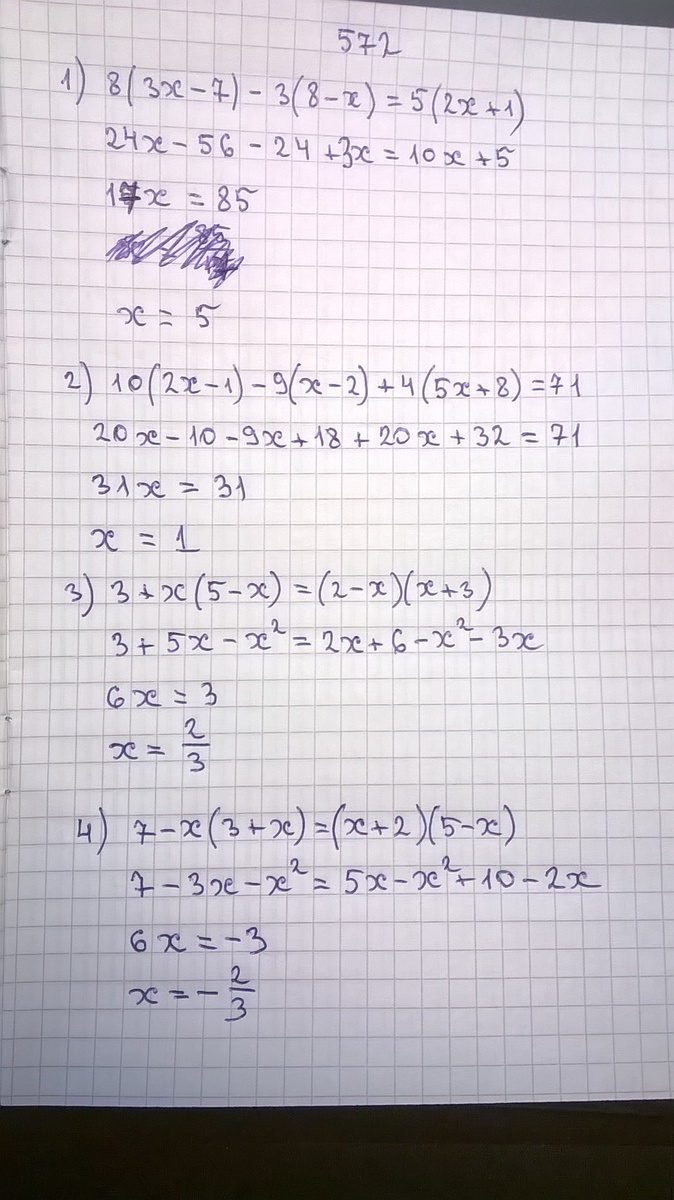 572
1) 8(3x-7)-3(8-x)=5(2x+1)
24x-56-24+3x=10x+5
17x=85
x=5
2) 10(2x-1)-9(x-2)+4(5x+8)=71
20x-10-9x+18+20x+32=71
31x=31
x=1
3) 3+x(5-x)=(2-x)(x+3)
3+5x-x²=2x+6-x²-3x
6x=3
x=2/3
4) 7-x(3+x)=(x+2)(5-x)
7-3x-x²=5x-x²+10-2x
6x=-3
x=-2/3